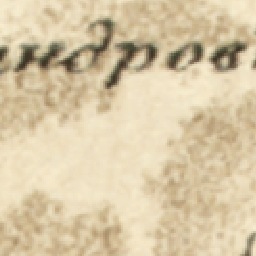 ндров